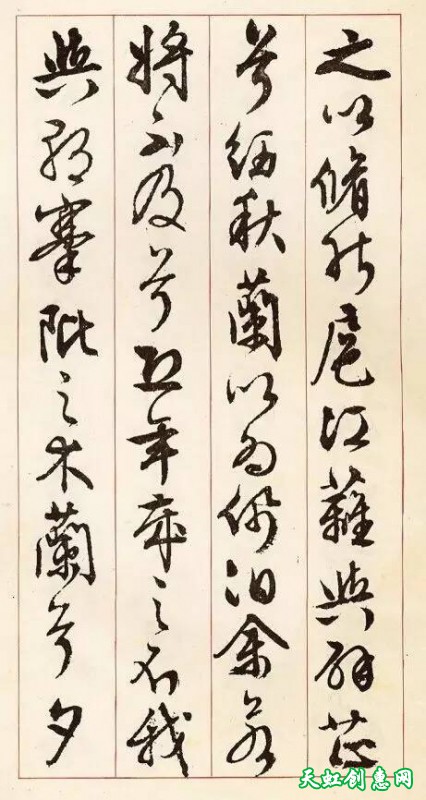 之以脩能扈江蘺與辟芷
兮紉秋蘭以為佩汨余若
將不及兮恐年歲之不我
與朝搴阰之木蘭兮夕
天虹创惠网